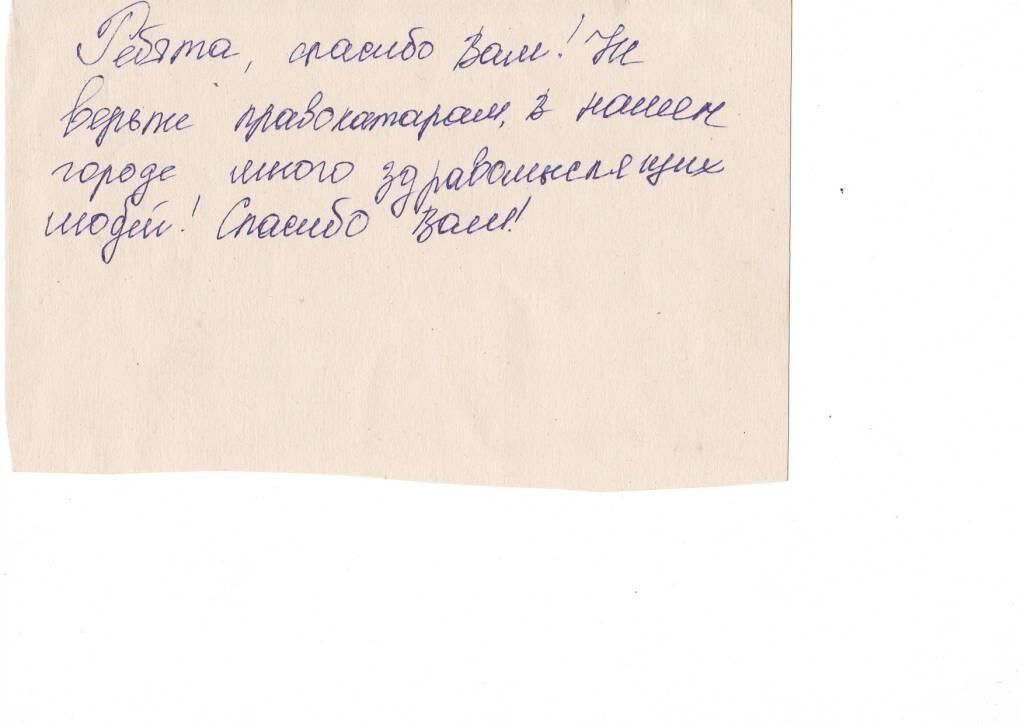 Ребята, спасибо Вам! Не
верьте правокатарам, в нашем
городе много здравомыслящих
людей! Спасибо Вам!